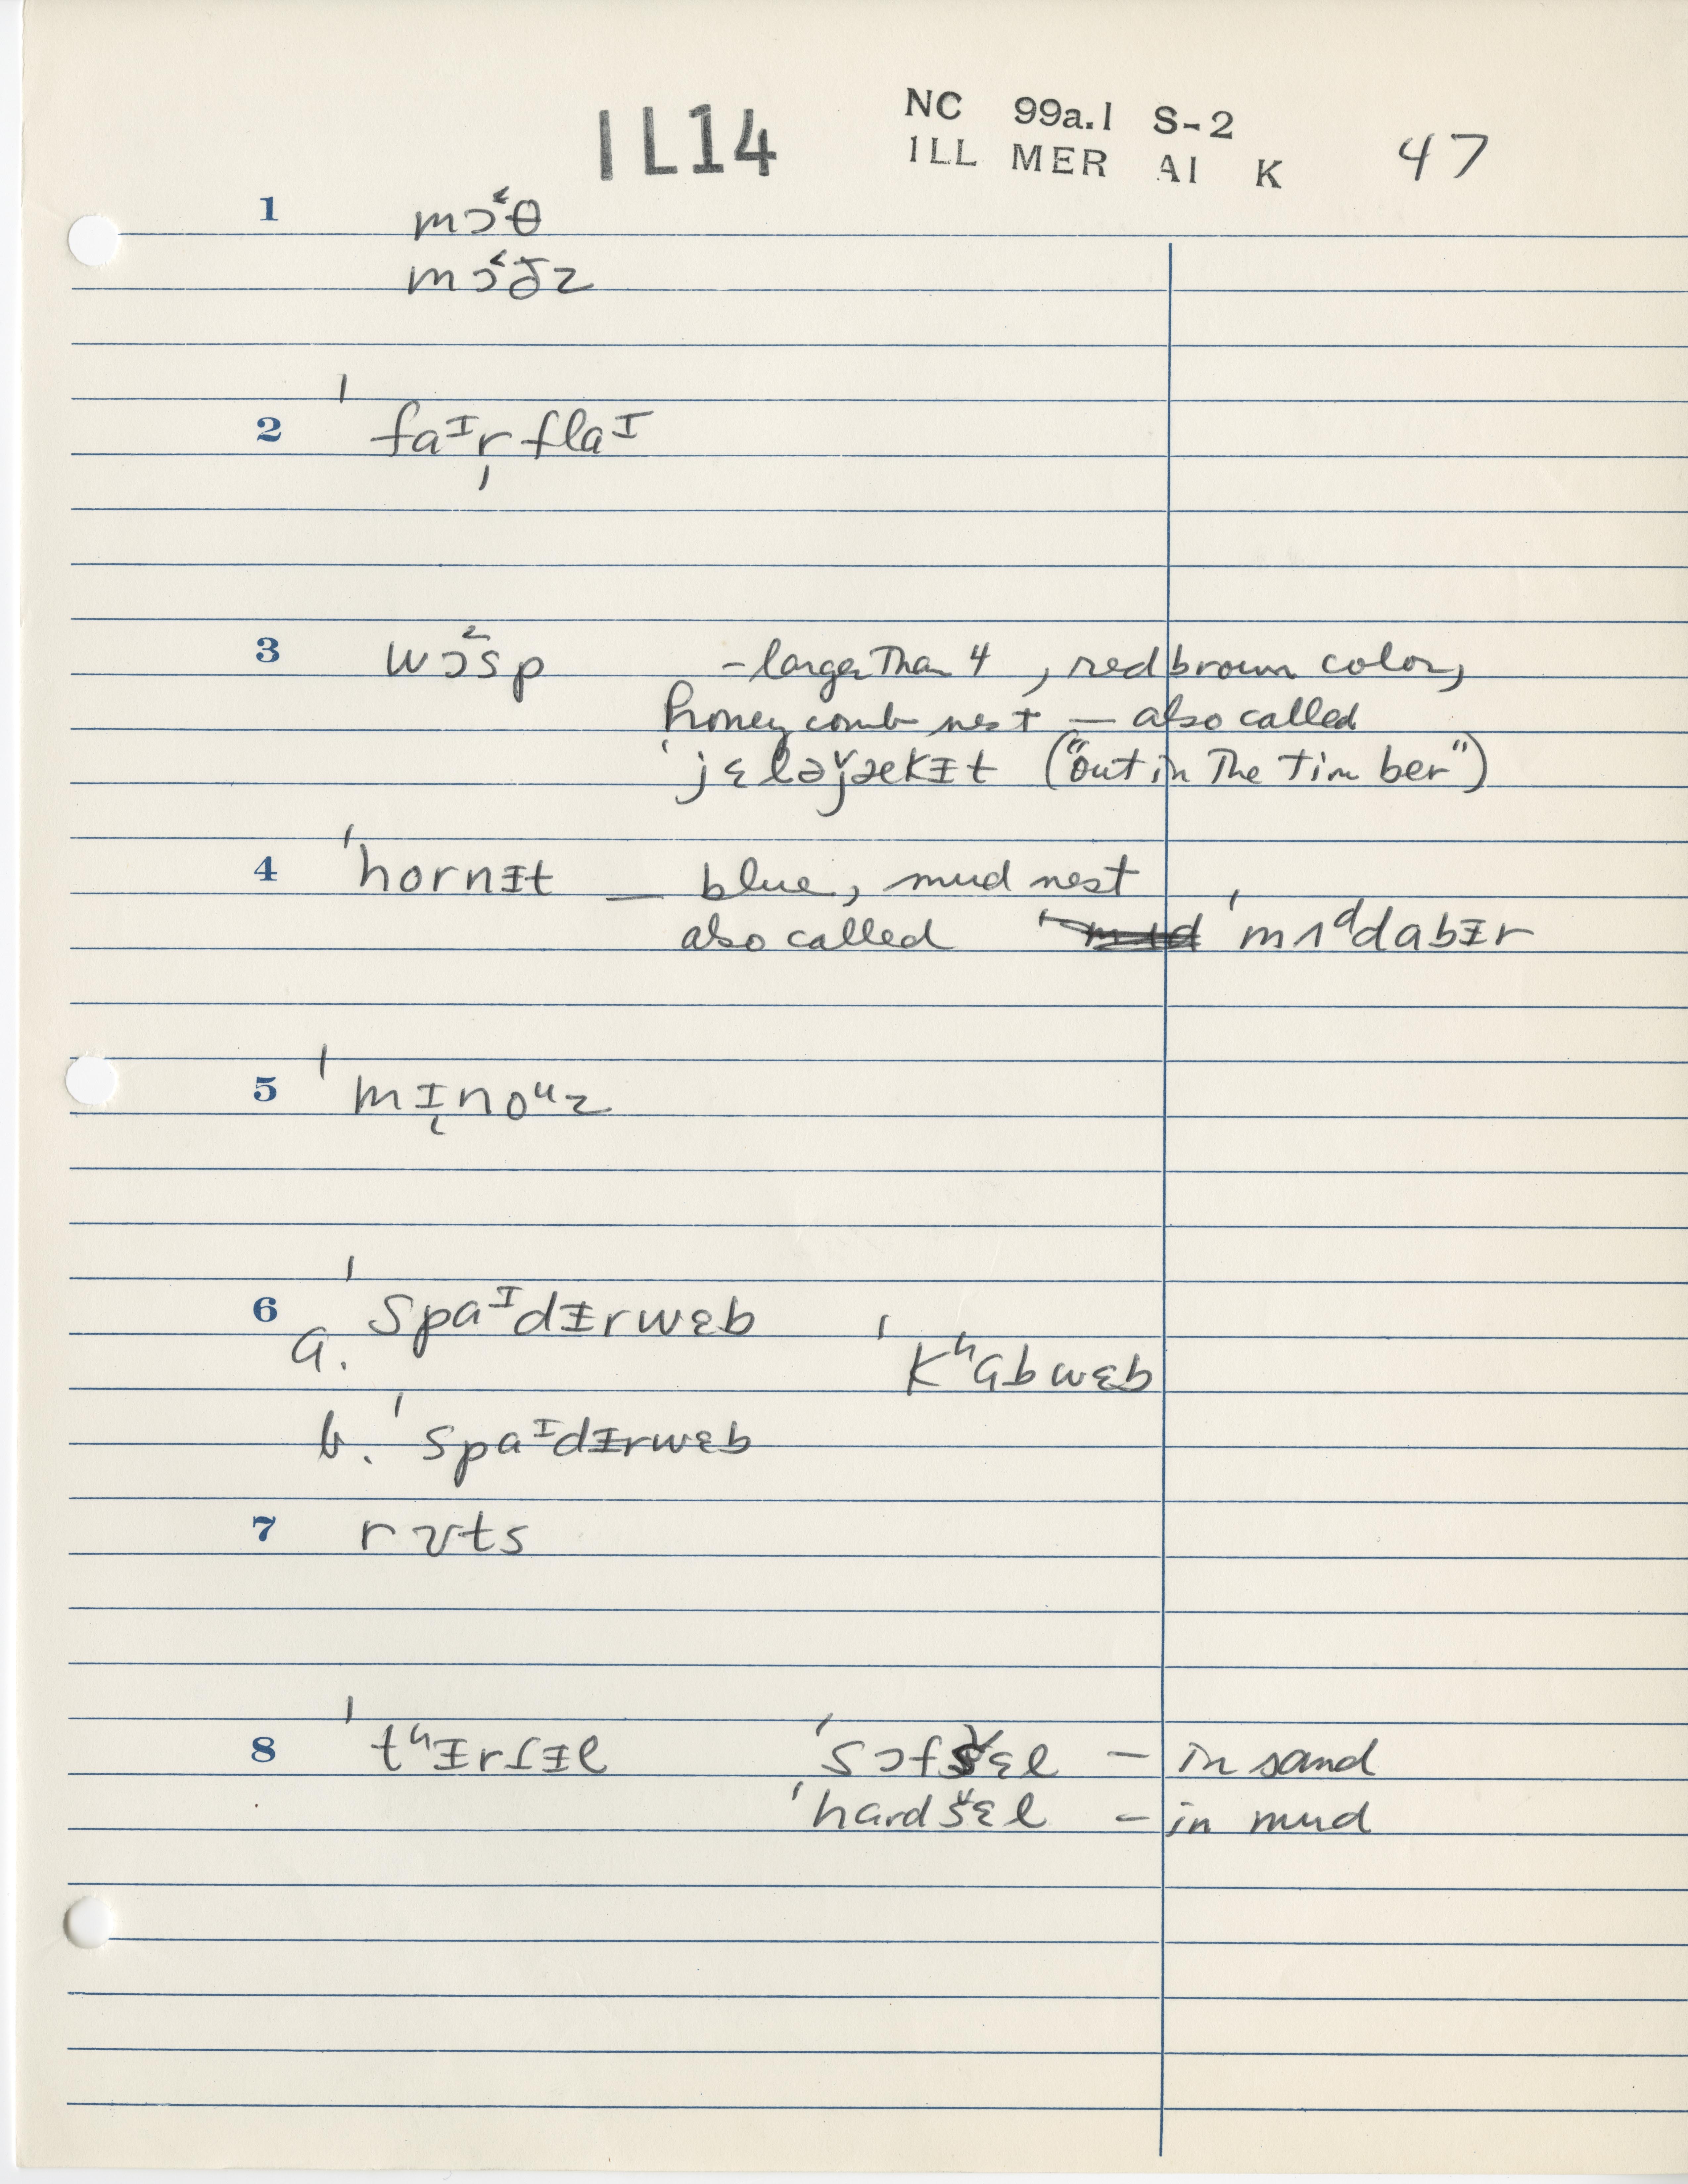 IL14
NC 99a.1 S-2
ILL MER AI K
47
1 mɔ˂θ
mɔ˂ðz
2 ˈfaᴵr̩flaᴵ
3 wɔsp – larger than 4, red brown color,
honey comb nest — also called
ˈjɛləǰækɪ̵t ("out in the timber")
4 ˈhornɪ̵t — blue, mud nest
also called ˈmʌᵈdabɪ̵r
5 ˈmɪnoᵘz
6 a. ˈspaᴵdɪ̵rwɛb ˈkʰɑbwɛb
b. ˈspaᴵdɪ̵rwɛb
7 rʊts
8 ˈtʰɪ̵rʃɪ̵l ˈsɔfšɛl — in sand
ˈhardšɛl — in mud